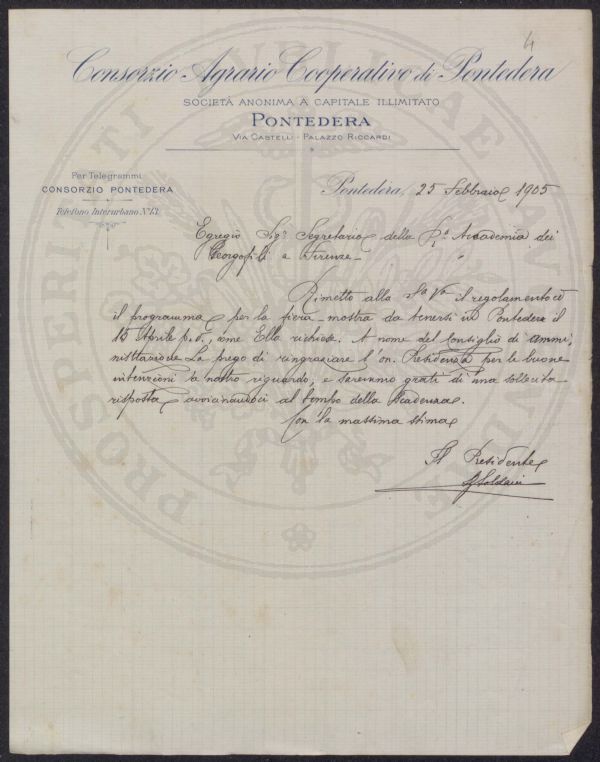 4
Consorzio Agrario Cooperativo di Pontedera
SOCIETÀ ANONIMA A CAPITALE ILLIMITATO
PONTEDERA
VIA CASTELLI - PALAZZO RICCARDI
Per Telegrammi
CONSORZIO PONTEDERA
Telefono Interurbano N.º 13
Pontedera, 25 Febbraio 1905
Egregio Sigr Segretario della Ra Accademia dei
Georgofili a Firenze -
Rimetto alla Sa Va il regolamento ed
il programma per la fiera-mostra da tenersi in Pontedera il
15 Aprile p.v., come Ella richiese. A nome del Consiglio di ammi,
nistrazione La prego di ringraziare l'on. Presidenza per le buone
intenzioni a nostro riguardo, e saremmo grati di una sollecita
risposta avvicinandoci al tempo della scadenza.
Con la massima stima
Il Presidente
PROSPERITATI PUBLICAE AUGENDAE